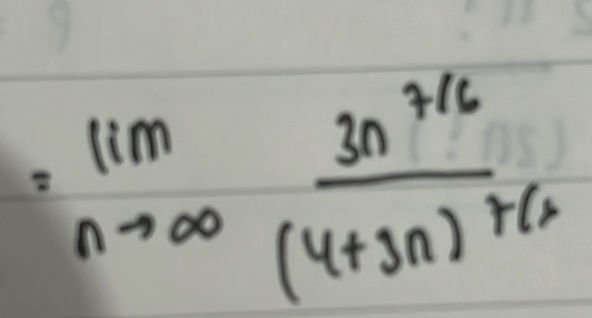 = lim n→∞ 3n^7/6 / (4+3n)